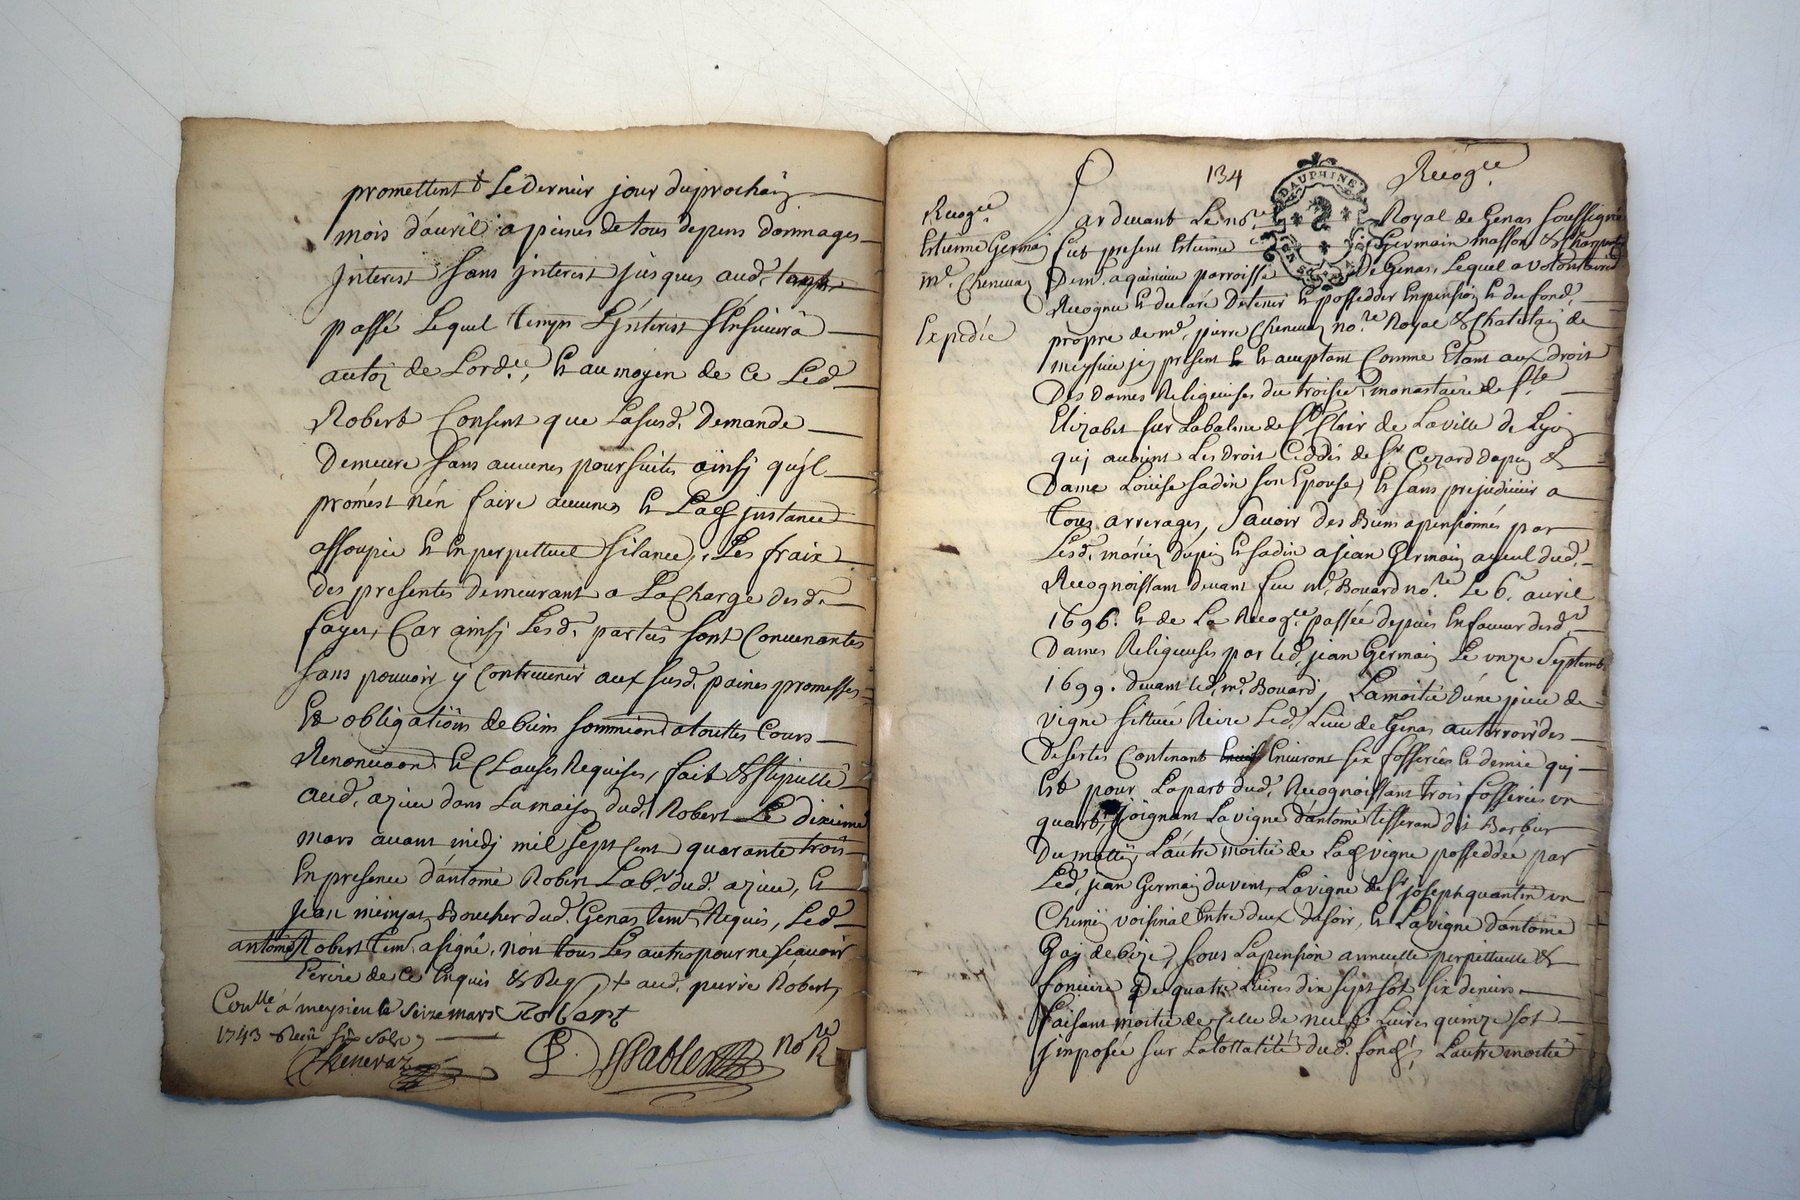 promettent le dernier jour du prochain
mois d'auril a peines de tous depens dommages
Interest sans jnterest jusques aud. temps
passé Lequel temps L'jnterest s'ensuiura
au to de L'ord.ce, Et au moyen de ce Led.
Robert Consent que La susd. Demande
Demeure sans aucunes poursuites ainsj qu'jl
promést n'én faire aucunes Et La d. jnstance
assoupie Et En perpettuel silance, Les fraix
des presentes demeurant a La Charge desd.
fayer, Car ainsj Lesd. parties sont Conuenantes
sans pouuoir y Contreuenir aux susd. paines promesses
Et obligations de biens sommiond a touttes Cours
Renonciaon. Et Clauses Requises, fait & stipulle
aud. azieu dans La maison dud. Robert Le dixieme
mars auant midj mil sept Cent quarante trois
En presence d'antoine Robert Lab.r dud. azieu, Et
Jean Boucher dud. Genas tem. Requis, Led.
antoine Robert tem. a signé, non tous Les autres pour ne scauoir
Ecrire de ce Enquis & Req aud. pierre Robert,
Con.lle a meysieu le seize mars Robert
1743 Receu six sols
Chenevaz
No.re R
134
Recog.ce
Recog.ce
Etienne Germain
m.e Cheneuaz
Expedié
Par deuant Le no.re Royal de Genas soussigné
fut present Etienne Germain masson & Charpentier
Dem.t a parroisse De Genas, Lequel a volontairement
Recognu Et declaré Detenir Et possedder En pension Et du fond.
propre de m.e pierre Cheneuaz no.re Royal & Chatelain de
meyssieu jcy present Et acceptant Comme Etant aux droit
Des Dames Religieuses du troisie. monastaire de S.te
Elizabet sur La balme de S.t Clair de La ville de Lyon
quj auoient Les droit Ceddés de S.r Cezard dupin &
Dame Louise sadin son Epouse, Et sans prejudicier a
tous arrerages, Sauoir des Biens apensionnés par
Lesd. mariés dupin Et sadin a jean Germain ayeul dud.
Recognoissant deuant feu m.e Bouard no.re Le 6.e auril
1696. Et de La Recog.ce passée depuis En faueur desd.
Dames Religieuses par led. jean Germain Le vnze Septemb.
1699. deuant led. m.e Bouard, La moitié d'une piece de
vigne sittuée Riere Led. Lieu de Genas au terroir des
Desertes Contenant Enuiront six fosserées Et demie quj
Est pour La part dud. Recognoissant trois fosserées vn
quart, Joignant La vigne d'antoine tisserand dit Barbur
Du mattin, L'autre moitié de La d. vigne posseddée par
Led. jean Germain du vent, La vigne de S.r joseph quantin vn
Chemin voisinal Entre deux du soir, Et La vigne d'antoine
Gaj de bize, sous La pension annuelle perpettuelle &
fonciere De quatre Liures dix sept sol six deniers
faisant moitié de Celle de neuf Liures quinze sol
jmposée sur La tottalité dud. fond, L'autre moitié